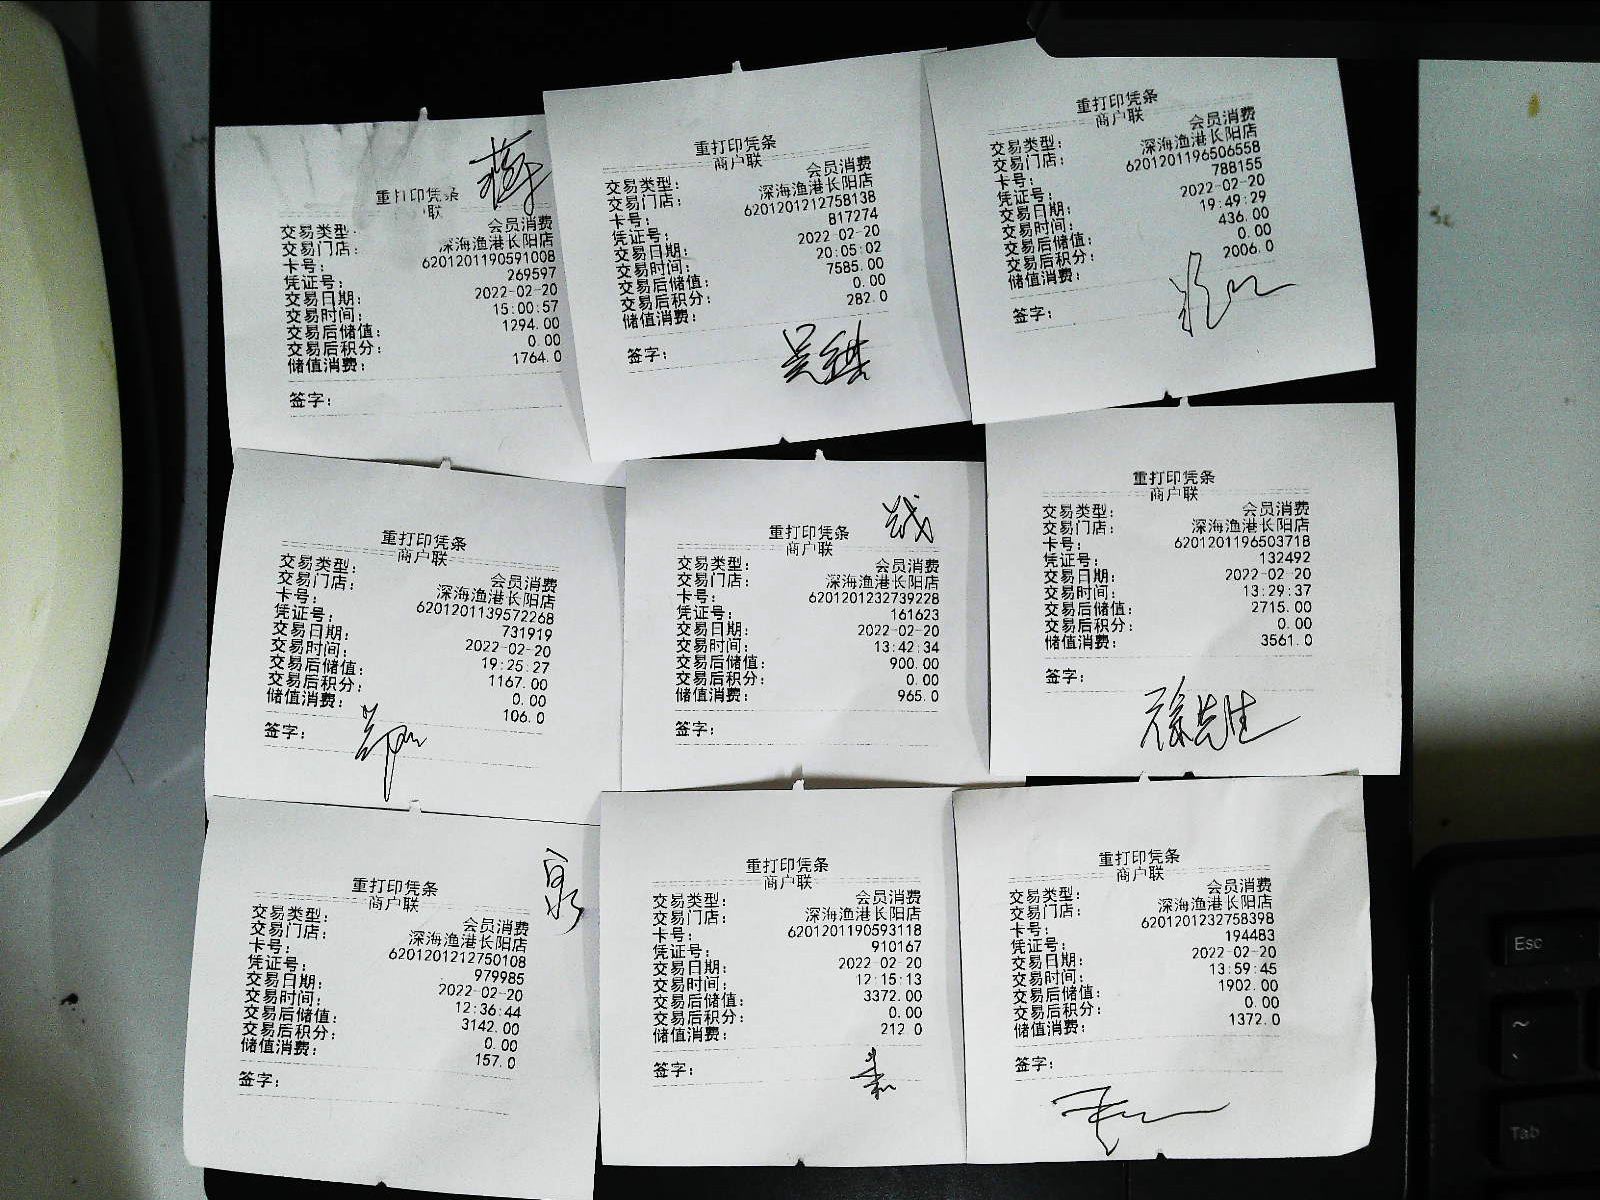 重打印凭条
联
交易类型: 会员消费
交易门店: 深海渔港长阳店
卡号: 6201201190591008
凭证号: 269597
交易日期: 2022-02-20
交易时间: 15:00:57
交易后储值: 1294.00
交易后积分: 0.00
储值消费: 1764.0
签字:
重打印凭条
商户联
交易类型: 会员消费
交易门店: 深海渔港长阳店
卡号: 6201201212758138
凭证号: 817274
交易日期: 2022-02-20
交易时间: 20:05:02
交易后储值: 7585.00
交易后积分: 0.00
储值消费: 282.0
签字:
重打印凭条
商户联
交易类型: 会员消费
交易门店: 深海渔港长阳店
卡号: 6201201196506558
凭证号: 788155
交易日期: 2022-02-20
交易时间: 19:49:29
交易后储值: 436.00
交易后积分: 0.00
储值消费: 2006.0
签字:
重打印凭条
商户联
交易类型: 会员消费
交易门店: 深海渔港长阳店
卡号: 6201201139572268
凭证号: 731919
交易日期: 2022-02-20
交易时间: 19:25:27
交易后储值: 1167.00
交易后积分: 0.00
储值消费: 106.0
签字:
重打印凭条
商户联
交易类型: 会员消费
交易门店: 深海渔港长阳店
卡号: 6201201232739228
凭证号: 161623
交易日期: 2022-02-20
交易时间: 13:42:34
交易后储值: 900.00
交易后积分: 0.00
储值消费: 965.0
签字:
重打印凭条
商户联
交易类型: 会员消费
交易门店: 深海渔港长阳店
卡号: 6201201196503718
凭证号: 132492
交易日期: 2022-02-20
交易时间: 13:29:37
交易后储值: 2715.00
交易后积分: 0.00
储值消费: 3561.0
签字:
徐先生
泉
重打印凭条
商户联
交易类型: 会员消费
交易门店: 深海渔港长阳店
卡号: 6201201212750108
凭证号: 979985
交易日期: 2022-02-20
交易时间: 12:36:44
交易后储值: 3142.00
交易后积分: 0.00
储值消费: 157.0
签字:
重打印凭条
商户联
交易类型: 会员消费
交易门店: 深海渔港长阳店
卡号: 6201201190593118
凭证号: 910167
交易日期: 2022-02-20
交易时间: 12:15:13
交易后储值: 3372.00
交易后积分: 0.00
储值消费: 212.0
签字:
重打印凭条
商户联
交易类型: 会员消费
交易门店: 深海渔港长阳店
卡号: 6201201232758398
凭证号: 194483
交易日期: 2022-02-20
交易时间: 13:59:45
交易后储值: 1902.00
交易后积分: 0.00
储值消费: 1372.0
签字:
Esc
~
Tab